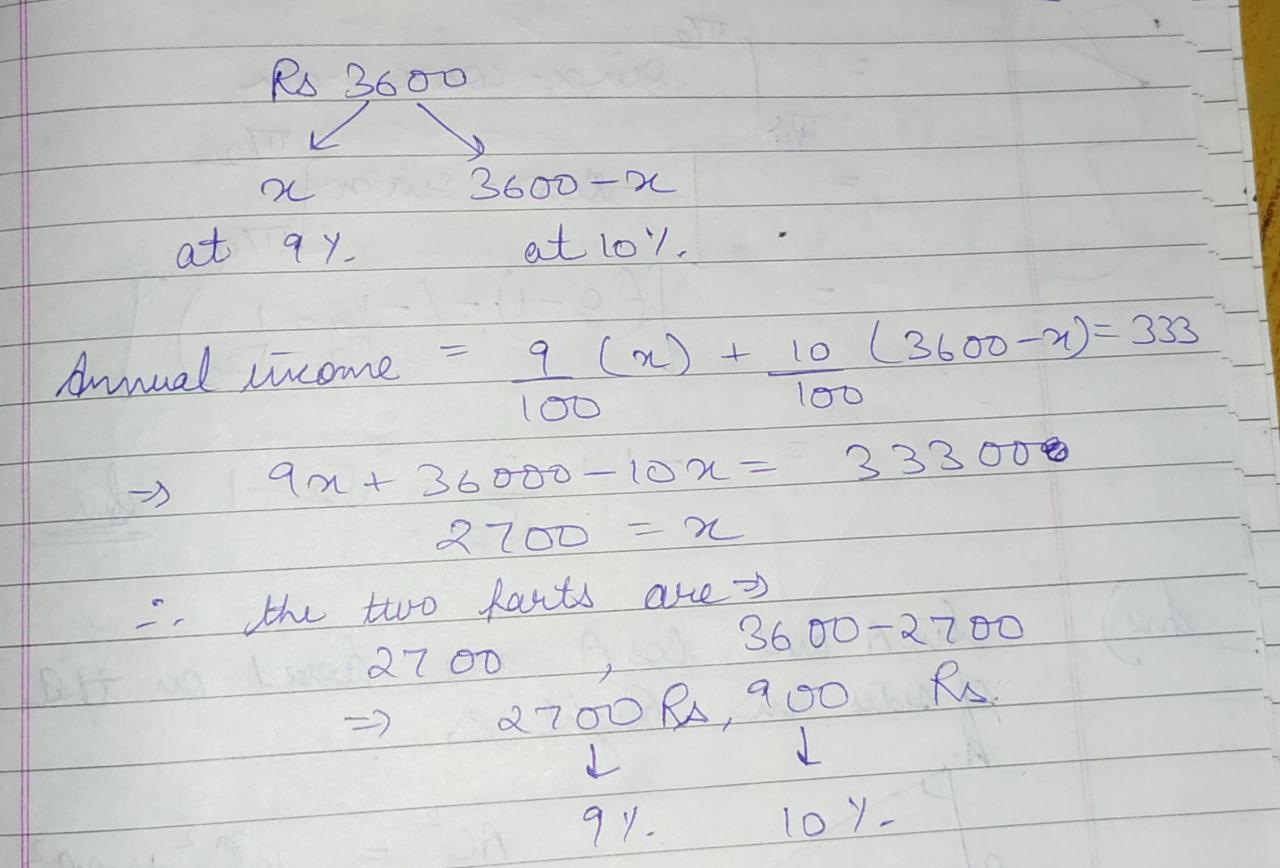 Rs 3600
x 3600-x
at 9%. at 10%.
Annual income = 9/100 (x) + 10/100 (3600-x) = 333
⇒ 9x + 36000 - 10x = 33300
2700 = x
∴ the two parts are ⇒
2700 , 3600-2700
⇒ 2700 Rs, 900 Rs.
↓ ↓
9%. 10%.